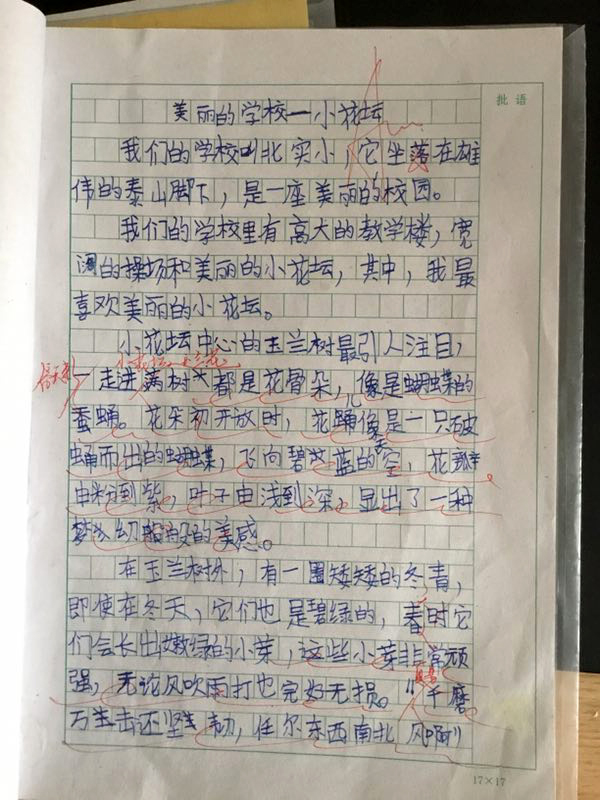 批语
美丽的学校—小花坛
我们的学校叫北实小，它坐落在雄
伟的泰山脚下，是一座美丽的校园。
我们的学校里有高大的教学楼，宽
阔的操场和美丽的小花坛，其中，我最
喜欢美丽的小花坛。
小花坛中心的玉兰树最引人注目，
一走进满树都是花骨朵，像是蝴蝶的
蚕蛹。花朵初开放时，花蛹像是一只破
蛹而出的蝴蝶，飞向碧蓝的天空，花瓣
由粉到紫，叶子由浅到深，显出了一种
梦幻般的美感。
在玉兰树外，有一圈矮矮的冬青，
即使在冬天，它们也是碧绿的，春时它
们会长出嫩绿的小芽，这些小芽非常顽
强，无论风吹雨打也完好无损。“千磨
万击还坚韧，任尔东西南北风啊”
17×17